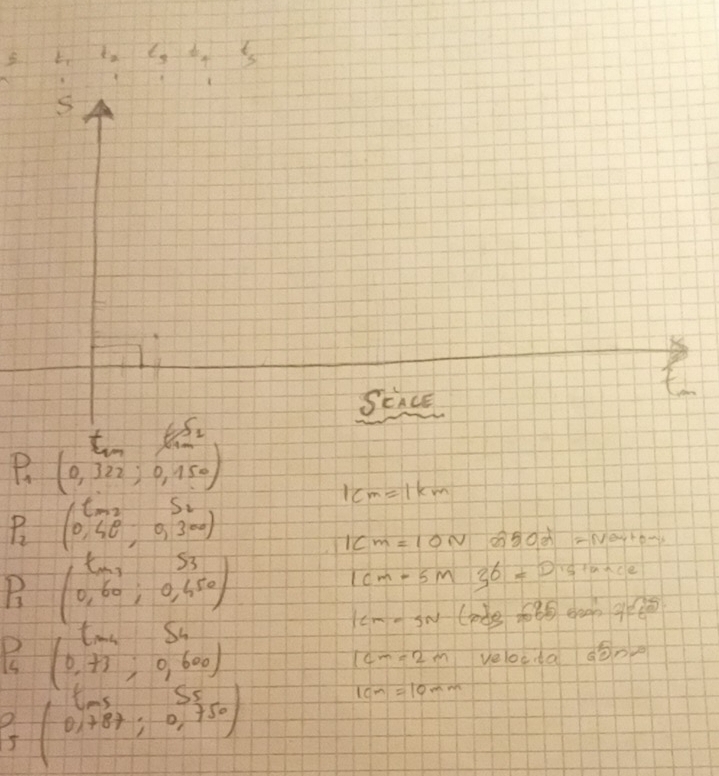 t₁ t₂ t₃ t₄ t₅
S
tm
SCALE
tm S₁
P₁ (0,322 ; 0,150)
tm2 S2
P₂ (0,48 ; 0,300)
tm3 S3
P₃ (0,60 ; 0,450)
tm4 S4
P₄ (0,73 ; 0,600)
tm5 S5
P₅ (0,787 ; 0,750)
1cm=1km
1cm=10N =Newton
1cm=5m = Distance
1cm=5N
1cm=2m velocita
1cm=10mm